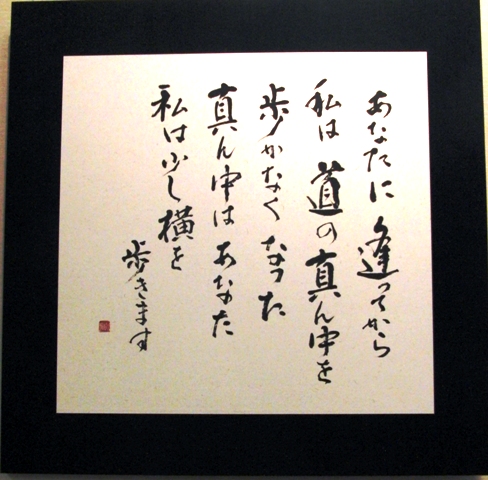 あなたに逢ってから
私は道の真ん中を
歩かなくなった
真ん中はあなた
私は少し横を
歩きます